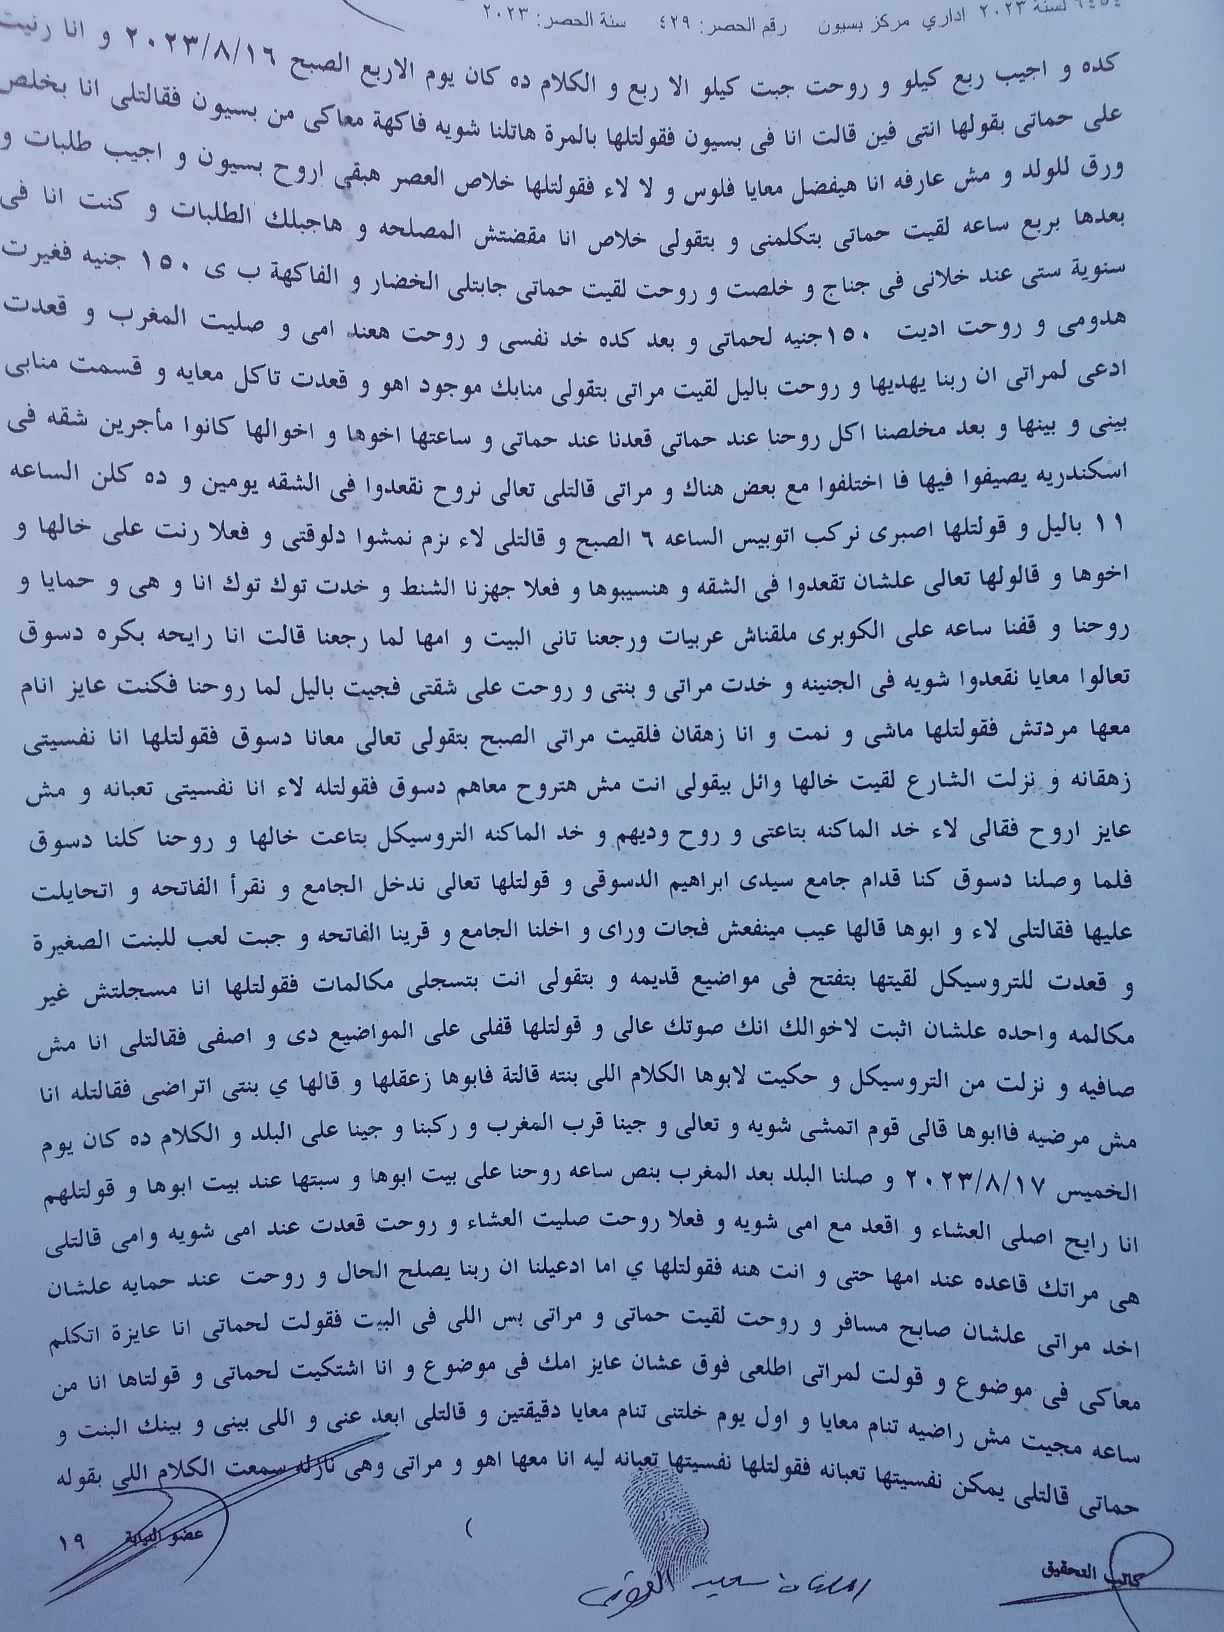 لسنة ٢٠٢٣ اداري مركز بسيون رقم الحصر: ٤٢٩ سنة الحصر: ٢٠٢٣
كده و اجيب ربع كيلو و روحت جبت كيلو الا ربع و الكلام ده كان يوم الاربع الصبح ٢٠٢٣/٨/١٦ و انا رنيت
على حماتى بقولها انتى فين قالت انا فى بسيون فقولتلها بالمرة هاتلنا شويه فاكهة معاكى من بسيون فقالتلى انا بخلص
ورق للولد و مش عارفه انا هيفضل معايا فلوس و لا لاء فقولتلها خلاص العصر هبقى اروح بسيون و اجيب طلبات و
بعدها بربع ساعه لقيت حماتى بتكلمنى و بتقولى خلاص انا مقضتش المصلحه و هاجبلك الطلبات و كنت انا فى
سنوية ستى عند خلانى فى جناج و خلصت و روحت لقيت حماتى جابتلى الخضار و الفاكهة ب ى ١٥٠ جنيه فغيرت
هدومى و روحت اديت ١٥٠جنيه لحماتى و بعد كده خد نفسى و روحت هعند امى و صليت المغرب و قعدت
ادعى لمراتى ان ربنا يهديها و روحت باليل لقيت مراتى بتقولى منابك موجود اهو و قعدت تاكل معايه و قسمت منابى
بينى و بينها و بعد مخلصنا اكل روحنا عند حماتى قعدنا عند حماتى و ساعتها اخوها و اخوالها كانوا مأجرين شقه فى
اسكندريه يصيفوا فيها فا اختلفوا مع بعض هناك و مراتى قالتلى تعالى نروح نقعدوا فى الشقه يومين و ده كلن الساعه
١١ باليل و قولتلها اصبرى نركب اتوبيس الساعه ٦ الصبح و قالتلى لاء نزم نمشوا دلوقتى و فعلا رنت على خالها و
اخوها و قالولها تعالى علشان تقعدوا فى الشقه و هنسيبوها و فعلا جهزنا الشنط و خدت توك توك انا و هى و حمايا و
روحنا و قفنا ساعه على الكوبرى ملقناش عربيات ورجعنا تانى البيت و امها لما رجعنا قالت انا رايحه بكره دسوق
تعالوا معايا نقعدوا شويه فى الجنينه و خدت مراتى و بنتى و روحت على شقتى فجيت باليل لما روحنا فكنت عايز انام
معها مردتش فقولتلها ماشى و نمت و انا زهقان فلقيت مراتى الصبح بتقولى تعالى معانا دسوق فقولتلها انا نفسيتى
زهقانه و نزلت الشارع لقيت خالها وائل بيقولى انت مش هتروح معاهم دسوق فقولتله لاء انا نفسيتى تعبانه و مش
عايز اروح فقالى لاء خد الماكنه بتاعتى و روح وديهم و خد الماكنه التروسيكل بتاعت خالها و روحنا كلنا دسوق
فلما وصلنا دسوق كنا قدام جامع سيدى ابراهيم الدسوقى و قولتلها تعالى ندخل الجامع و نقرأ الفاتحه و اتحايلت
عليها فقالتلى لاء و ابوها قالها عيب مينفعش فجات وراى و اخلنا الجامع و قرينا الفاتحه و جبت لعب للبنت الصغيرة
و قعدت للتروسيكل لقيتها بتفتح فى مواضيع قديمه و بتقولى انت بتسجلى مكالمات فقولتلها انا مسجلتش غير
مكالمه واحده علشان اثبت لاخوالك انك صوتك عالى و قولتلها قفلى على المواضيع دى و اصفى فقالتلى انا مش
صافيه و نزلت من التروسيكل و حكيت لابوها الكلام اللى بنته قالتة فابوها زعقلها و قالها ي بنتى اتراضى فقالتله انا
مش مرضيه فاابوها قالى قوم اتمشى شويه و تعالى و جينا قرب المغرب و ركبنا و جينا على البلد و الكلام ده كان يوم
الخميس ٢٠٢٣/٨/١٧ و صلنا البلد بعد المغرب بنص ساعه روحنا على بيت ابوها و سبتها عند بيت ابوها و قولتلهم
انا رايح اصلى العشاء و اقعد مع امى شويه و فعلا روحت صليت العشاء و روحت قعدت عند امى شويه وامى قالتلى
هى مراتك قاعده عند امها حتى و انت هنه فقولتلها ي اما ادعيلنا ان ربنا يصلح الحال و روحت عند حمايه علشان
اخد مراتى علشان صابح مسافر و روحت لقيت حماتى و مراتى بس اللى فى البيت فقولت لحماتى انا عايزة اتكلم
معاكى فى موضوع و قولت لمراتى اطلعى فوق عشان عايز امك فى موضوع و انا اشتكيت لحماتى و قولتاها انا من
ساعه مجيت مش راضيه تنام معايا و اول يوم خلتنى تنام معايا دقيقتين و قالتلى ابعد عنى و اللى بينى و بينك البنت و
حماتى قالتلى يمكن نفسيتها تعبانه فقولتلها نفسيتها تعبانه ليه انا معها اهو و مراتى وهى نازله سمعت الكلام اللى بقوله
كاتب التحقيق ( ) عضو النيابة ١٩